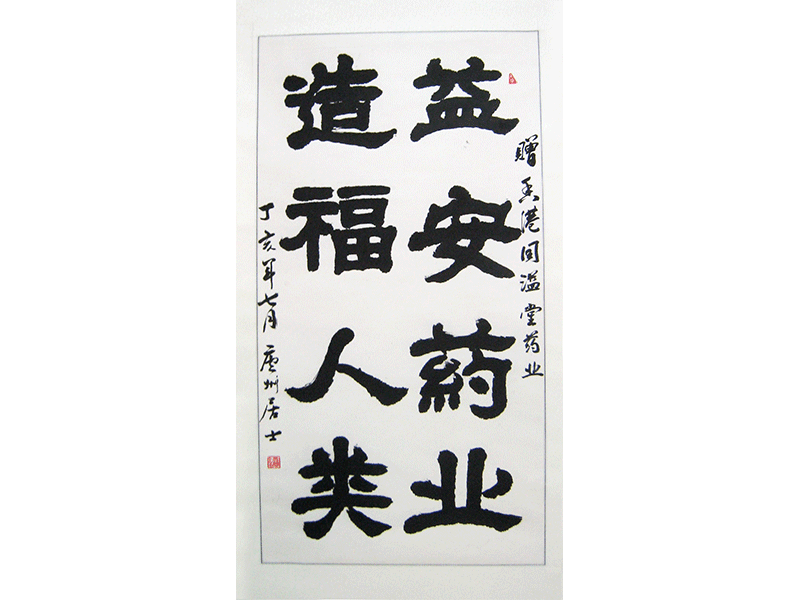 赠香港同溢堂药业
益安葯业
造福人类
丁亥年七月 州居士